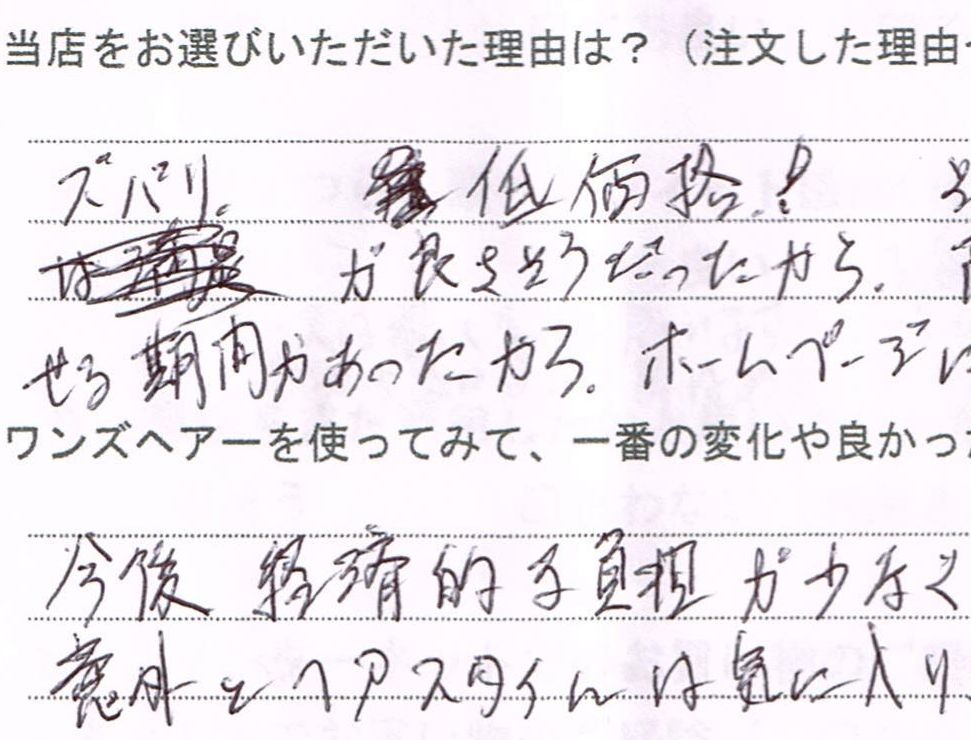 当店をお選びいただいた理由は？（注文した理由
ズバリ. 低価格.!
は が良さそうだったから.
せる期間があったから. ホームページに
ワンズヘアーを使ってみて、一番の変化や良かっ
今後 経済的な負担が少なく
意外とヘアスタイルは気に入り